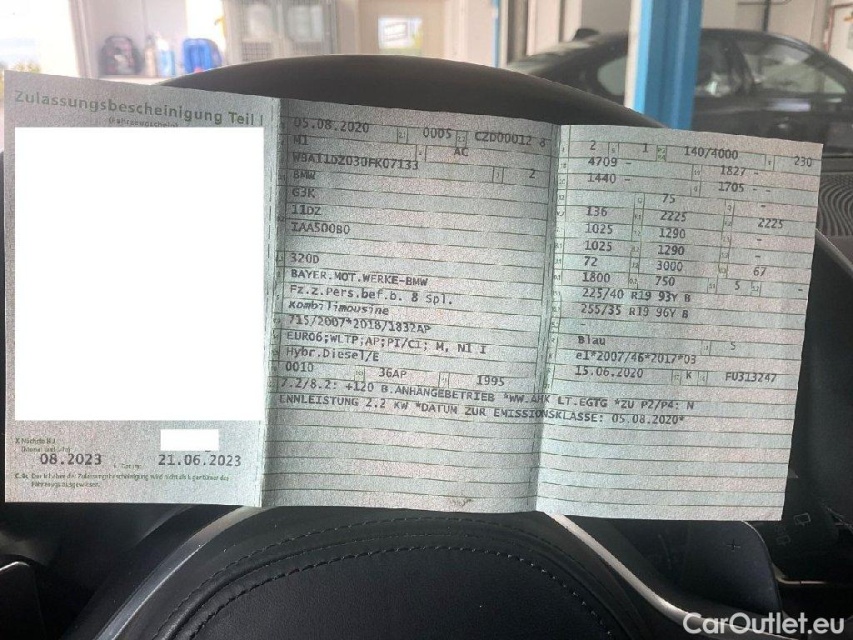 Zulassungsbescheinigung Teil I
(Fahrzeugschein)
08.2023 21.06.2023
05.08.2020 0005 CZD00012 8
M1 AC
WBA11DZ030FK07133 2
BMW
G3K
11DZ
IAA500B0
320D
BAYER.MOT.WERKE-BMW
Fz.z.Pers.bef.b. 8 Spl.
Kombilimousine
715/2007*2018/1832AP
EURO6;WLTP;AP;PI/CI; M, N1 I
Hybr.Diesel/E
0010 36AP 1995
7.2/8.2: +120 B.ANHÄNGEBETRIEB *WW.AHK LT.EGTG *ZU P2/P4: N
ENNLEISTUNG 2.2 KW *DATUM ZUR EMISSIONSKLASSE: 05.08.2020*
2 1 140/4000 230
4709 - 1827 -
1440 - 1705 -
75
136 2225 2225
1025 1290
1025 1290
72 3000 67
1800 750 5 -
225/40 R19 93Y B
255/35 R19 96Y B
-
Blau 5
e1*2007/46*2017*03
15.06.2020 K FU313247
CarOutlet.eu